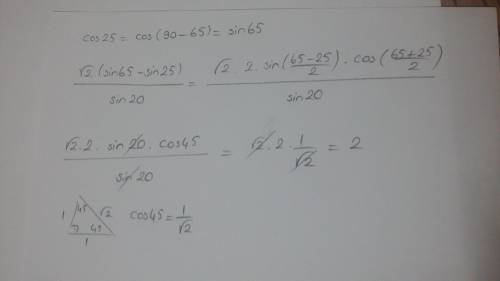 cos25 = cos(90-65) = sin65
√2.(sin65-sin25) / sin20 = √2 . 2 . sin((65-25)/2) . cos((65+25)/2) / sin20
√2.2. sin20. cos45 / sin20 = √2 . 2 . 1/√2 = 2
1 45 √2 45 1 cos45 = 1/√2